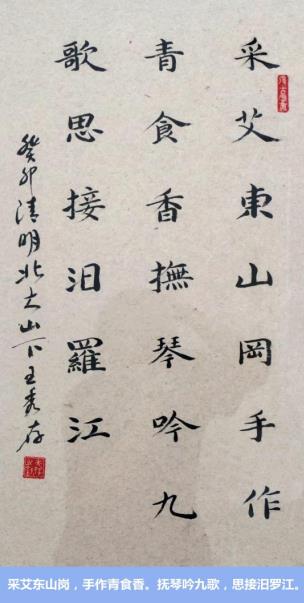 采艾東山岡手作
青食香撫琴吟九
歌思接汨羅江
癸卯清明北大山下王秀存
采艾东山岗，手作青食香。抚琴吟九歌，思接汨罗江。